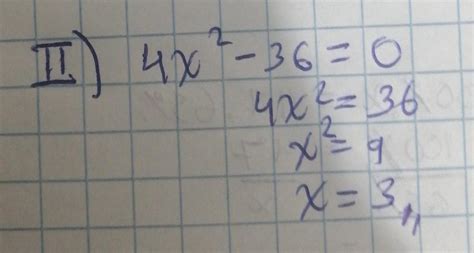 II) 4x² - 36 = 0
4x² = 36
x² = 9
x = 3,,